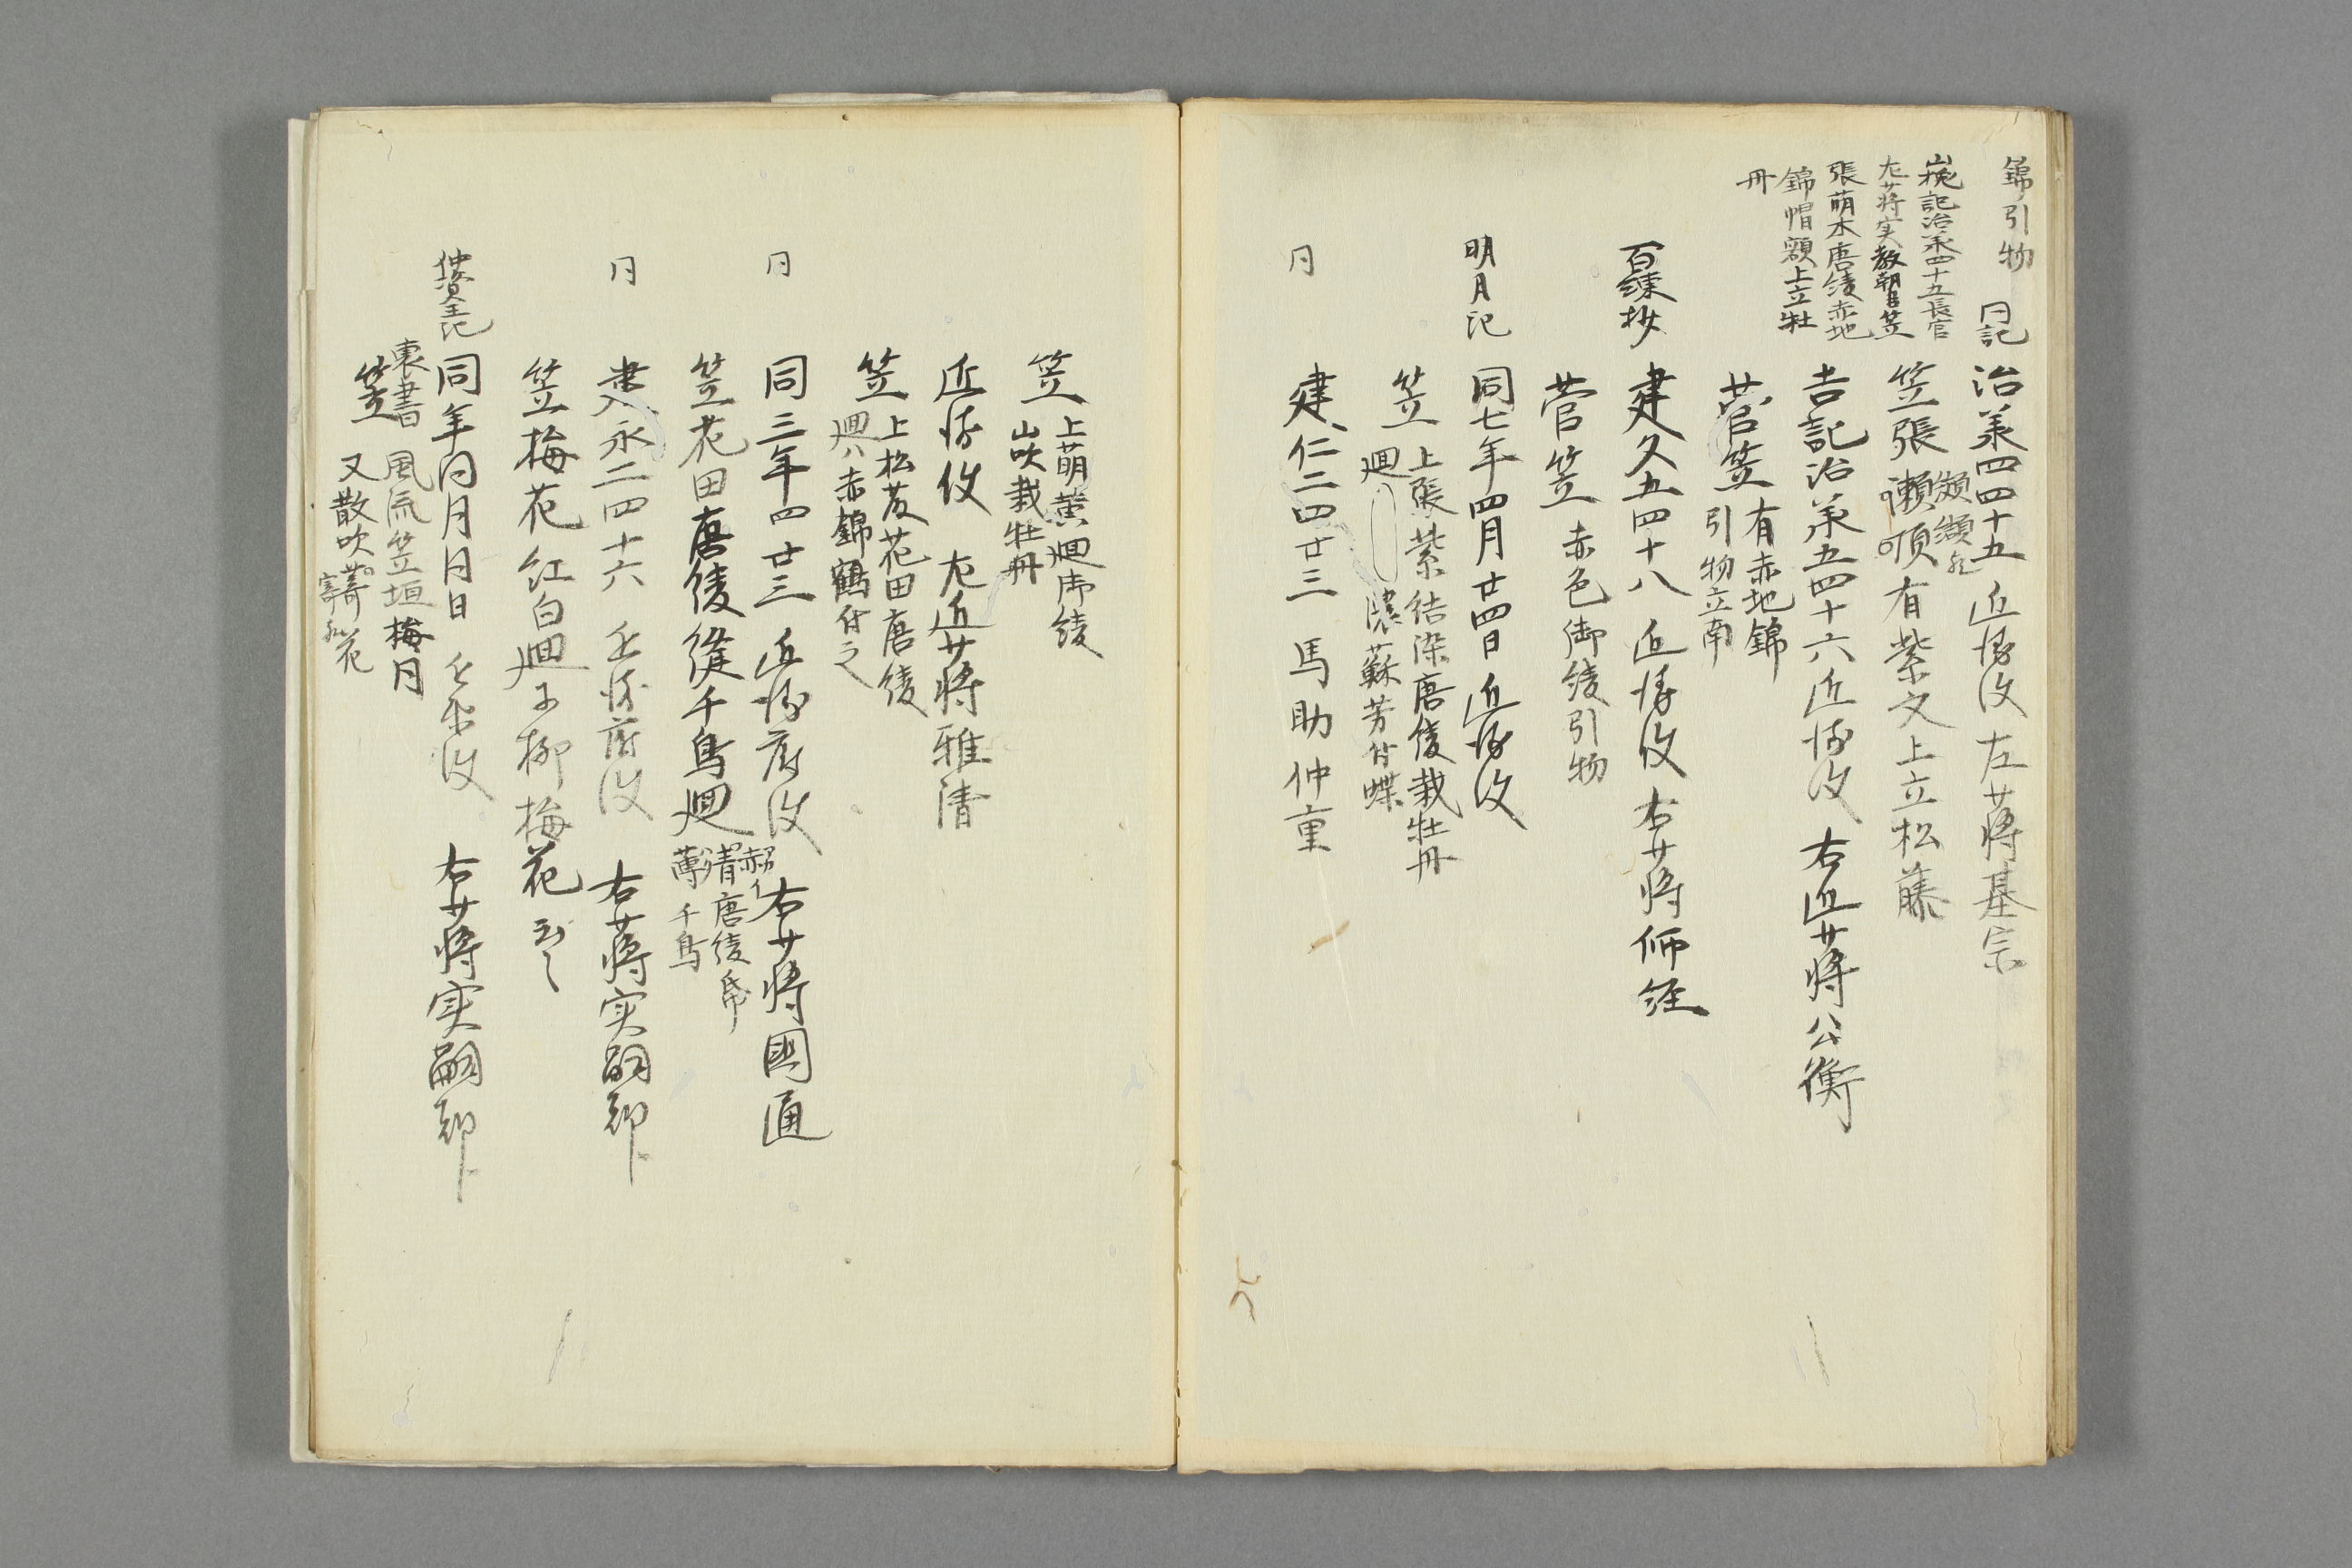 錦引物
山槐記治承四十五長官
左少将実教朝臣笠
張萌木唐綾赤地
錦帽額上立牡
丹
同記
治承四四十五 近衛使 左少将基宗
笠張 瀬項 有紫文上立松藤
纐纈歟
吉記治承五四十六近衛使 右近少将公衡
菅笠 有赤地錦
引物立南
百練抄
建久五四十八 近衛使 右少将師経
菅笠 赤色御綾引物
明月記
同七年四月廿四日 近衛使
笠 上張紫結染唐綾栽牡丹
廻 濃蘇芳付蝶
同
建仁二四廿三 馬助仲重
笠 上萌黄廻御綾
山吹栽牡丹
近衛使 左近少将雅清
笠 上松茂花田唐綾
廻ハ赤錦鶴付之
同
同三年四廿三 近衛府使 右少将国通
笠花田唐綾縫千鳥廻 青唐綾帋
薄 千鳥
同
建永二四十六 近衛府使 右少将実嗣卿
笠梅花紅白廻ニ柳梅花云々
仲資王記
同年同月同日 近衛使 右少将実嗣卿
裏書 風流笠垣梅月
笠 又散吹 花